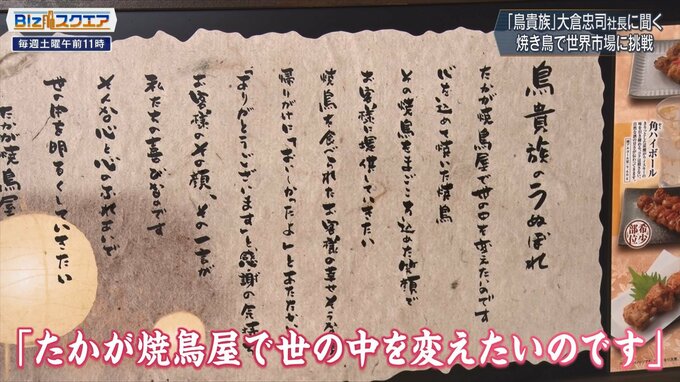 Bizスクエア
毎週土曜午前11時
「鳥貴族」大倉忠司社長に聞く
焼き鳥で世界市場に挑戦
鳥貴族のうぬぼれ
たかが焼鳥屋で世の中を変えたいのです
心を込めて焼いた焼鳥
その焼鳥をまごころ込めた笑顔で
お客様に提供していきたい
焼鳥を食べられたお客様の幸せそうな
帰りがけに「おいしかったよ」とあたたかい
「ありがとうございます」と、感謝の
お客様のその顔、その一言が
私たちの喜びなのです
そんな心と心のふれあいで
世の中を明るくしていきたい
たかが焼鳥屋
角ハイボール
希少部位
「たかが焼鳥屋で世の中を変えたいのです」